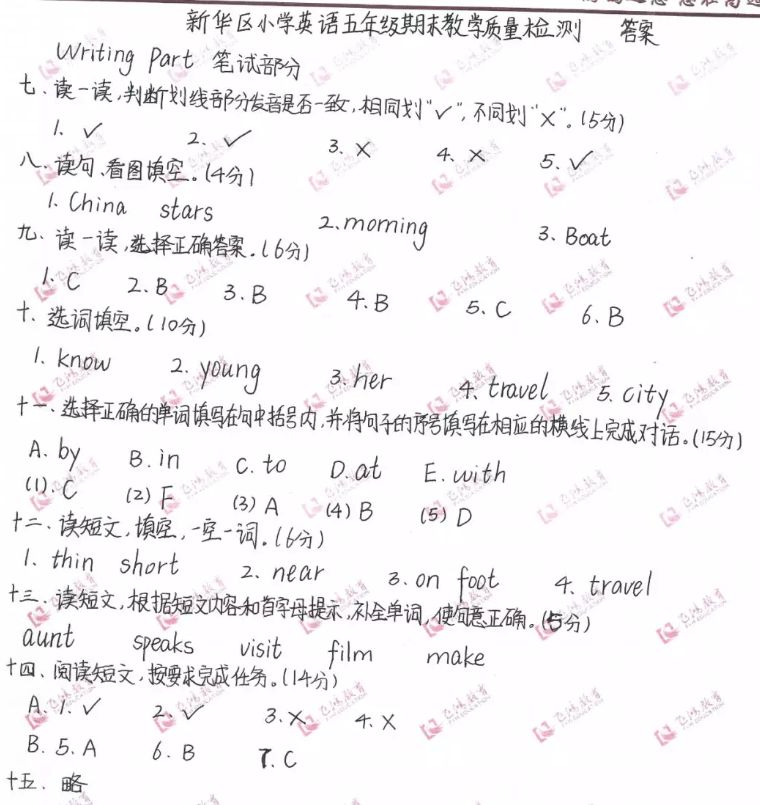 新华区小学英语五年级期末教学质量检测 答案
Writing Part 笔试部分
七、读一读,判断划线部分发音是否一致,相同划"✓",不同划"X"。(5分)
1. ✓ 2. ✓ 3. X 4. X 5. ✓
八、读句、看图填空。(4分)
1. China stars 2. morning 3. Boat
九、读一读,选择正确答案。(6分)
1. C 2. B 3. B 4. B 5. C 6. B
十、选词填空。(10分)
1. know 2. young 3. her 4. travel 5. city
十一、选择正确的单词填写在句中括号内,并将句子的序号填写在相应的横线上完成对话。(15分)
A. by B. in C. to D. at E. with
(1). C (2) F (3) A (4) B (5) D
十二、读短文,填空,一空一词。(6分)
1. thin short 2. near 3. on foot 4. travel
十三、读短文,根据短文内容和首字母提示,补全单词,使句意正确。(5分)
aunt speaks visit film make
十四、阅读短文,按要求完成任务。(14分)
A. 1. ✓ 2. ✓ 3. X 4. X
B. 5. A 6. B 7. C
十五、略